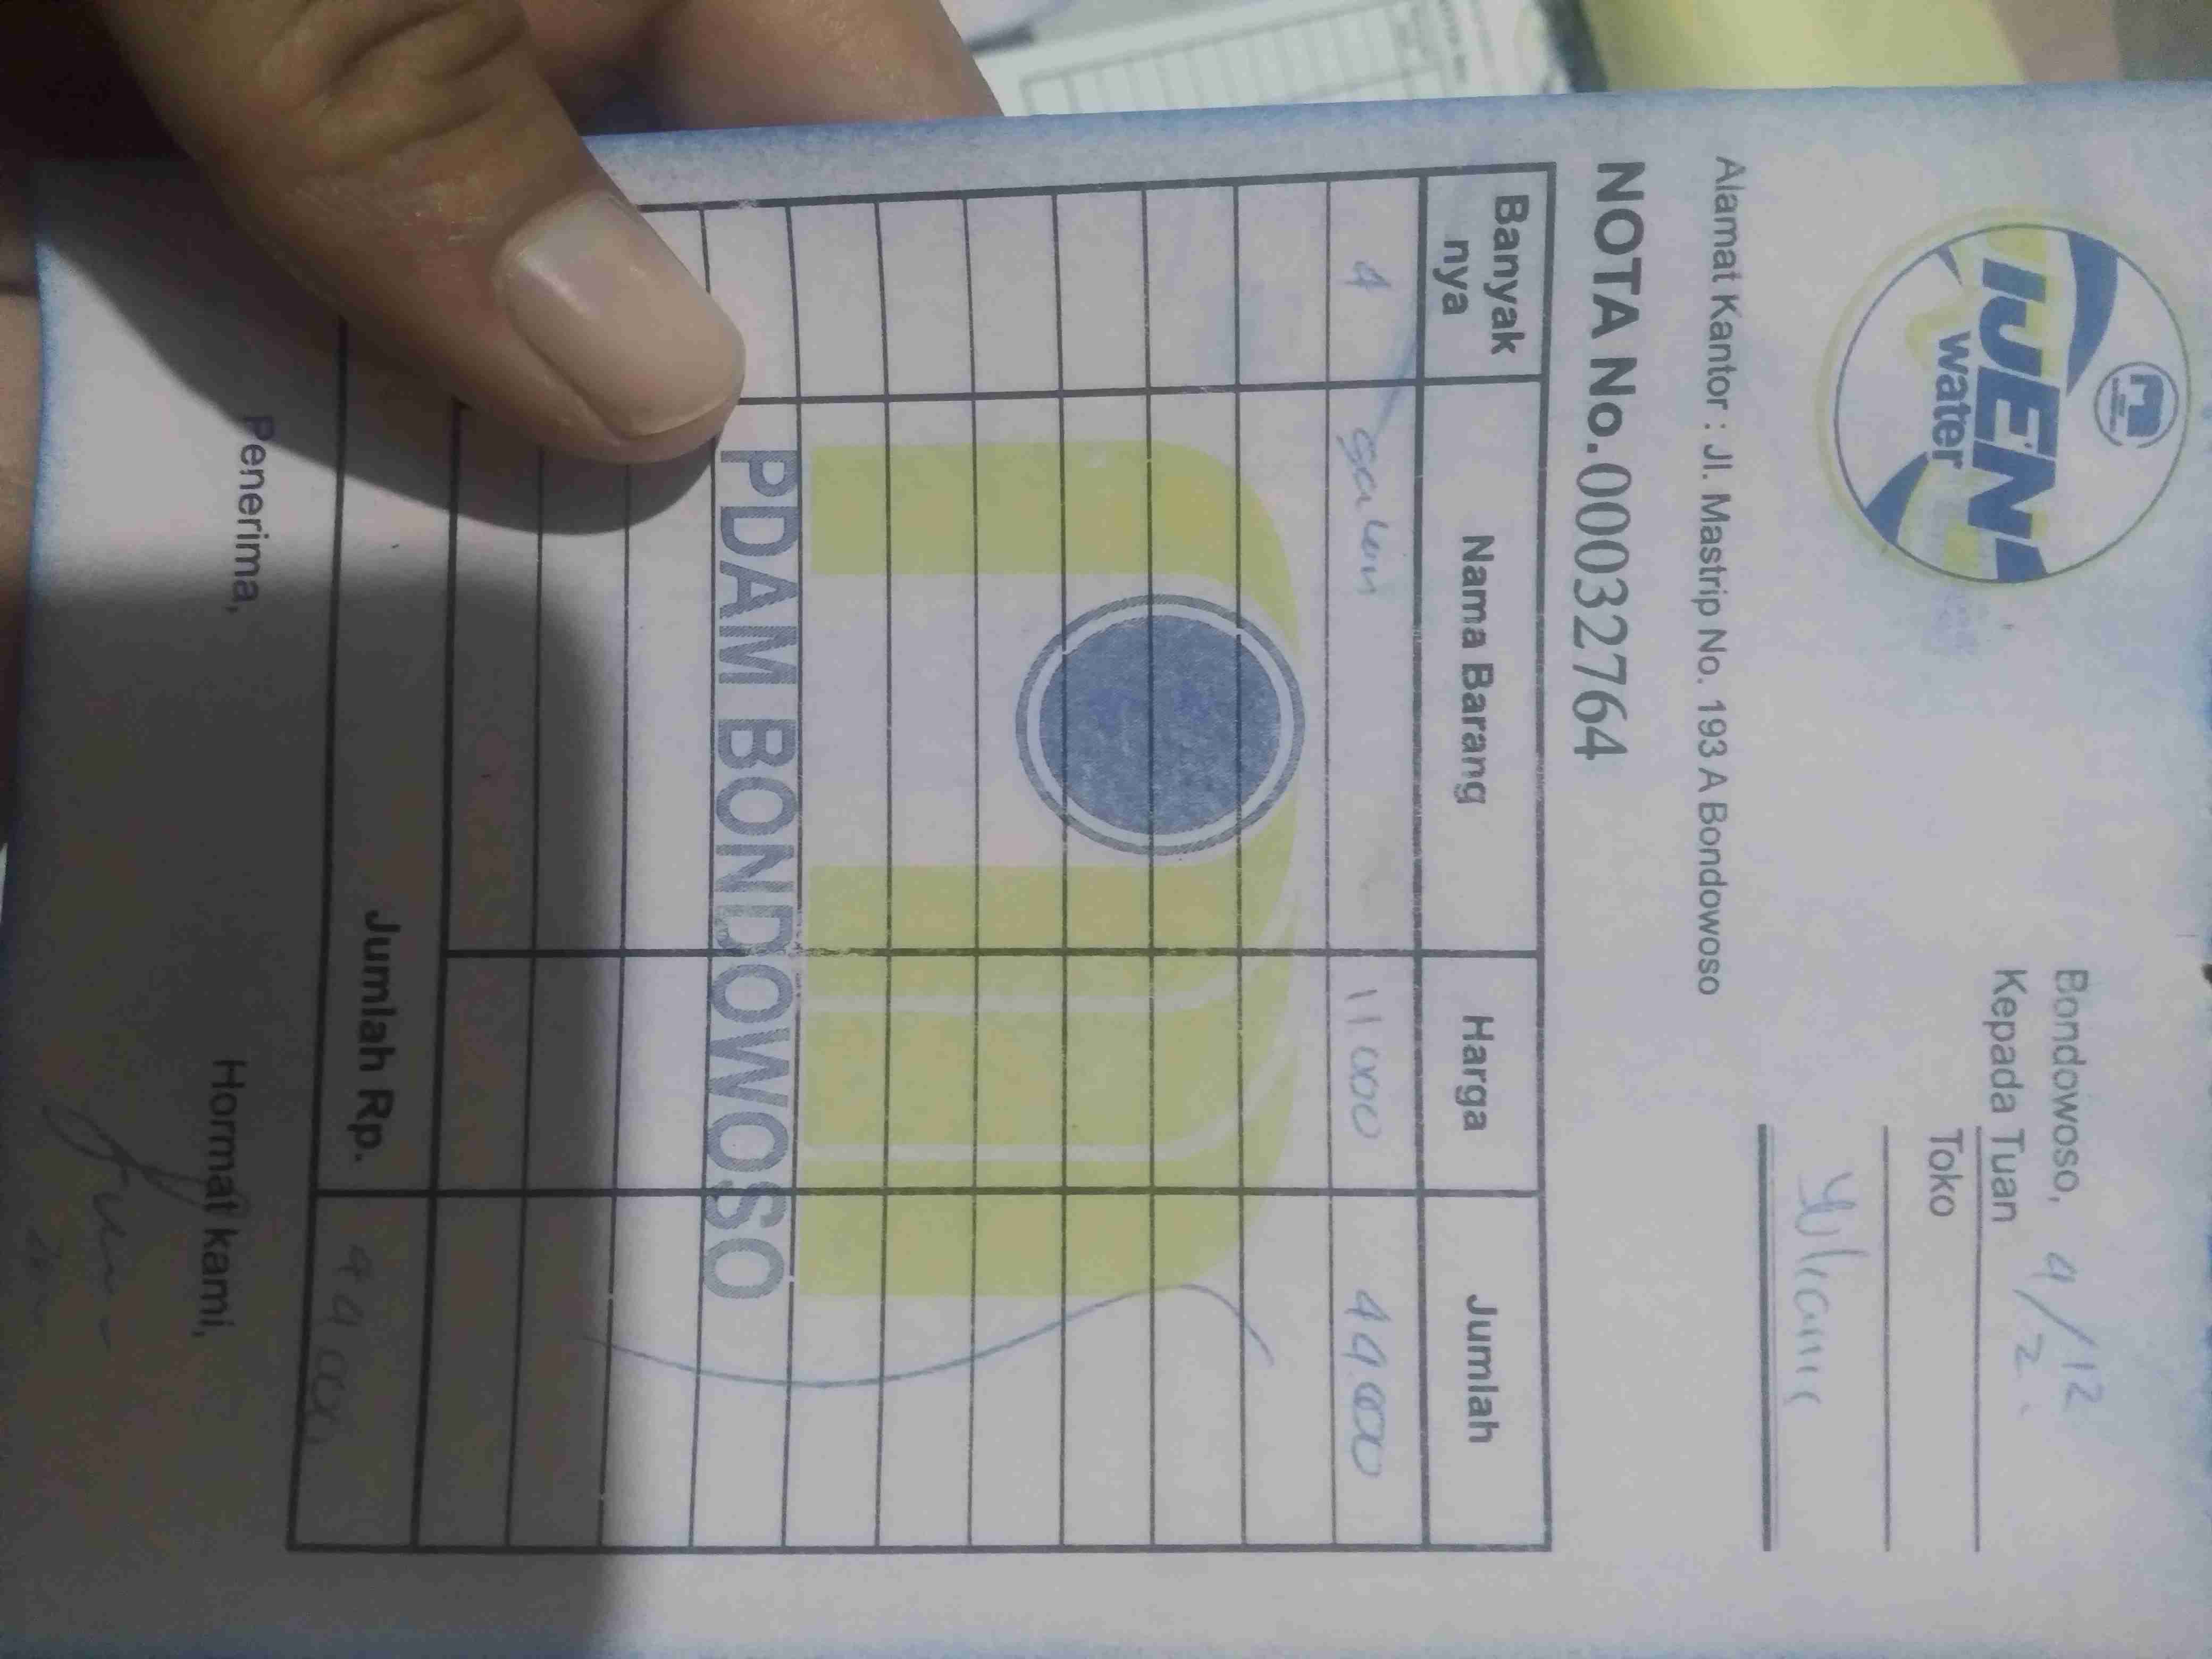 IJEN
water
Bondowoso, 4/12
Kepada Tuan
Toko
Yuliani
Alamat Kantor : Jl. Mastrip No. 193 A Bondowoso
NOTA No.00032764
Banyak nya Nama Barang Harga Jumlah
4 galon 11 000 44.000
PDAM BONDOWOSO
Jumlah Rp. 44.000
Penerima, Hormat kami,